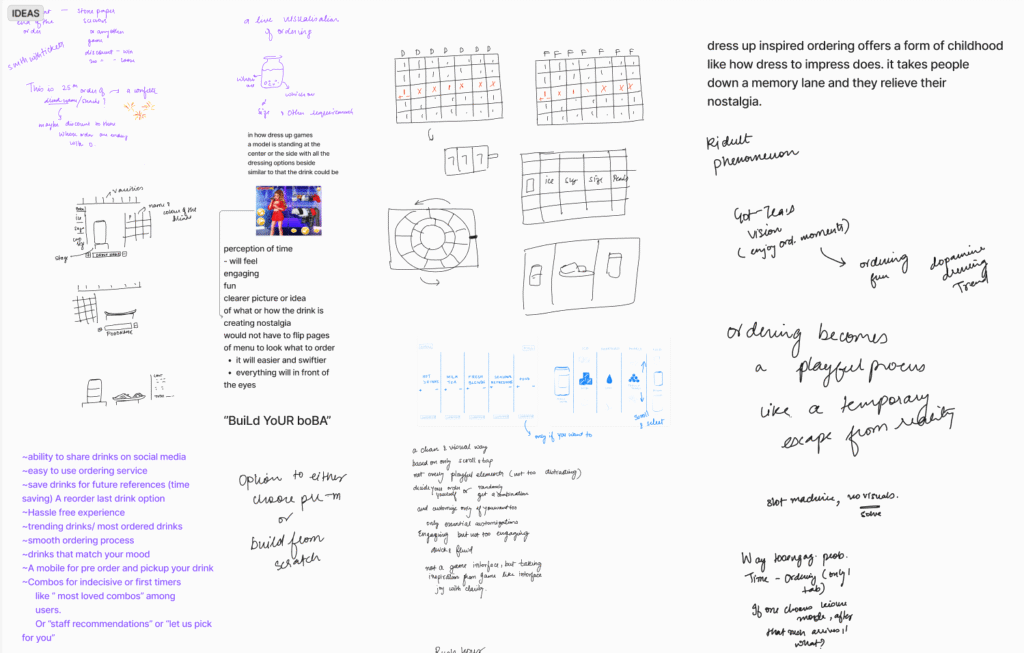 IDEAS
stone paper
end of the
order
or any other
game
discount - win
This is 25th order of
maybe discount to them
whose order are ending
with 0.
a live visualisation
of ordering
Size & other requirements
in how dress up games
a model is standing at the
center or the side with all the
dressing options beside
similar to that the drink could be
perception of time
- will feel
engaging
fun
clearer picture or idea
of what or how the drink is
creating nostalgia
would not have to flip pages
of menu to look what to order
• it will easier and swiftier
• everything will in front of
the eyes
"BuiLd YoUR boBA"
Option to either
choose pre-m
or
build from
scratch
varieties
name &
colour of the
drink
~ability to share drinks on social media
~easy to use ordering service
~save drinks for future references (time
saving) A reorder last drink option
~Hassle free experience
~trending drinks/ most ordered drinks
~smooth ordering process
~drinks that match your mood
~A mobile for pre order and pickup your drink
~Combos for indecisive or first timers
like " most loved combos" among
users.
Or "staff recommendations" or "let us pick
for you"
D D D D D D D
F F F F F F F
7 7 7
ice
size
MILK
TEA
FRESH
scroll
& select
only if you want to
a clean & visual way
based on only scroll & tap
not overly playful elements (not too distracting)
decide your order or randomly
yourself get a combination
and customize only if you want to
only essential customizations
Engaging but not too engaging
quick & fluid
not a game interface, but taking
inspiration from game like interface
joy with clarity.
Rush hour
dress up inspired ordering offers a form of childhood
like how dress to impress does. it takes people
down a memory lane and they relieve their
nostalgia.
Kidult
phenomenon
Got Tea's
vision
(enjoy ord. moments)
ordering
fun
dopamine
dressing
Trend
ordering becomes
a playful process
like a temporary
escape from reality
slot machine, no visuals.
solve
Way to engag. prob.
Time - Ordering (only 1
tab)
If one chooses leisure
mode, after
that rush arrives,
what?